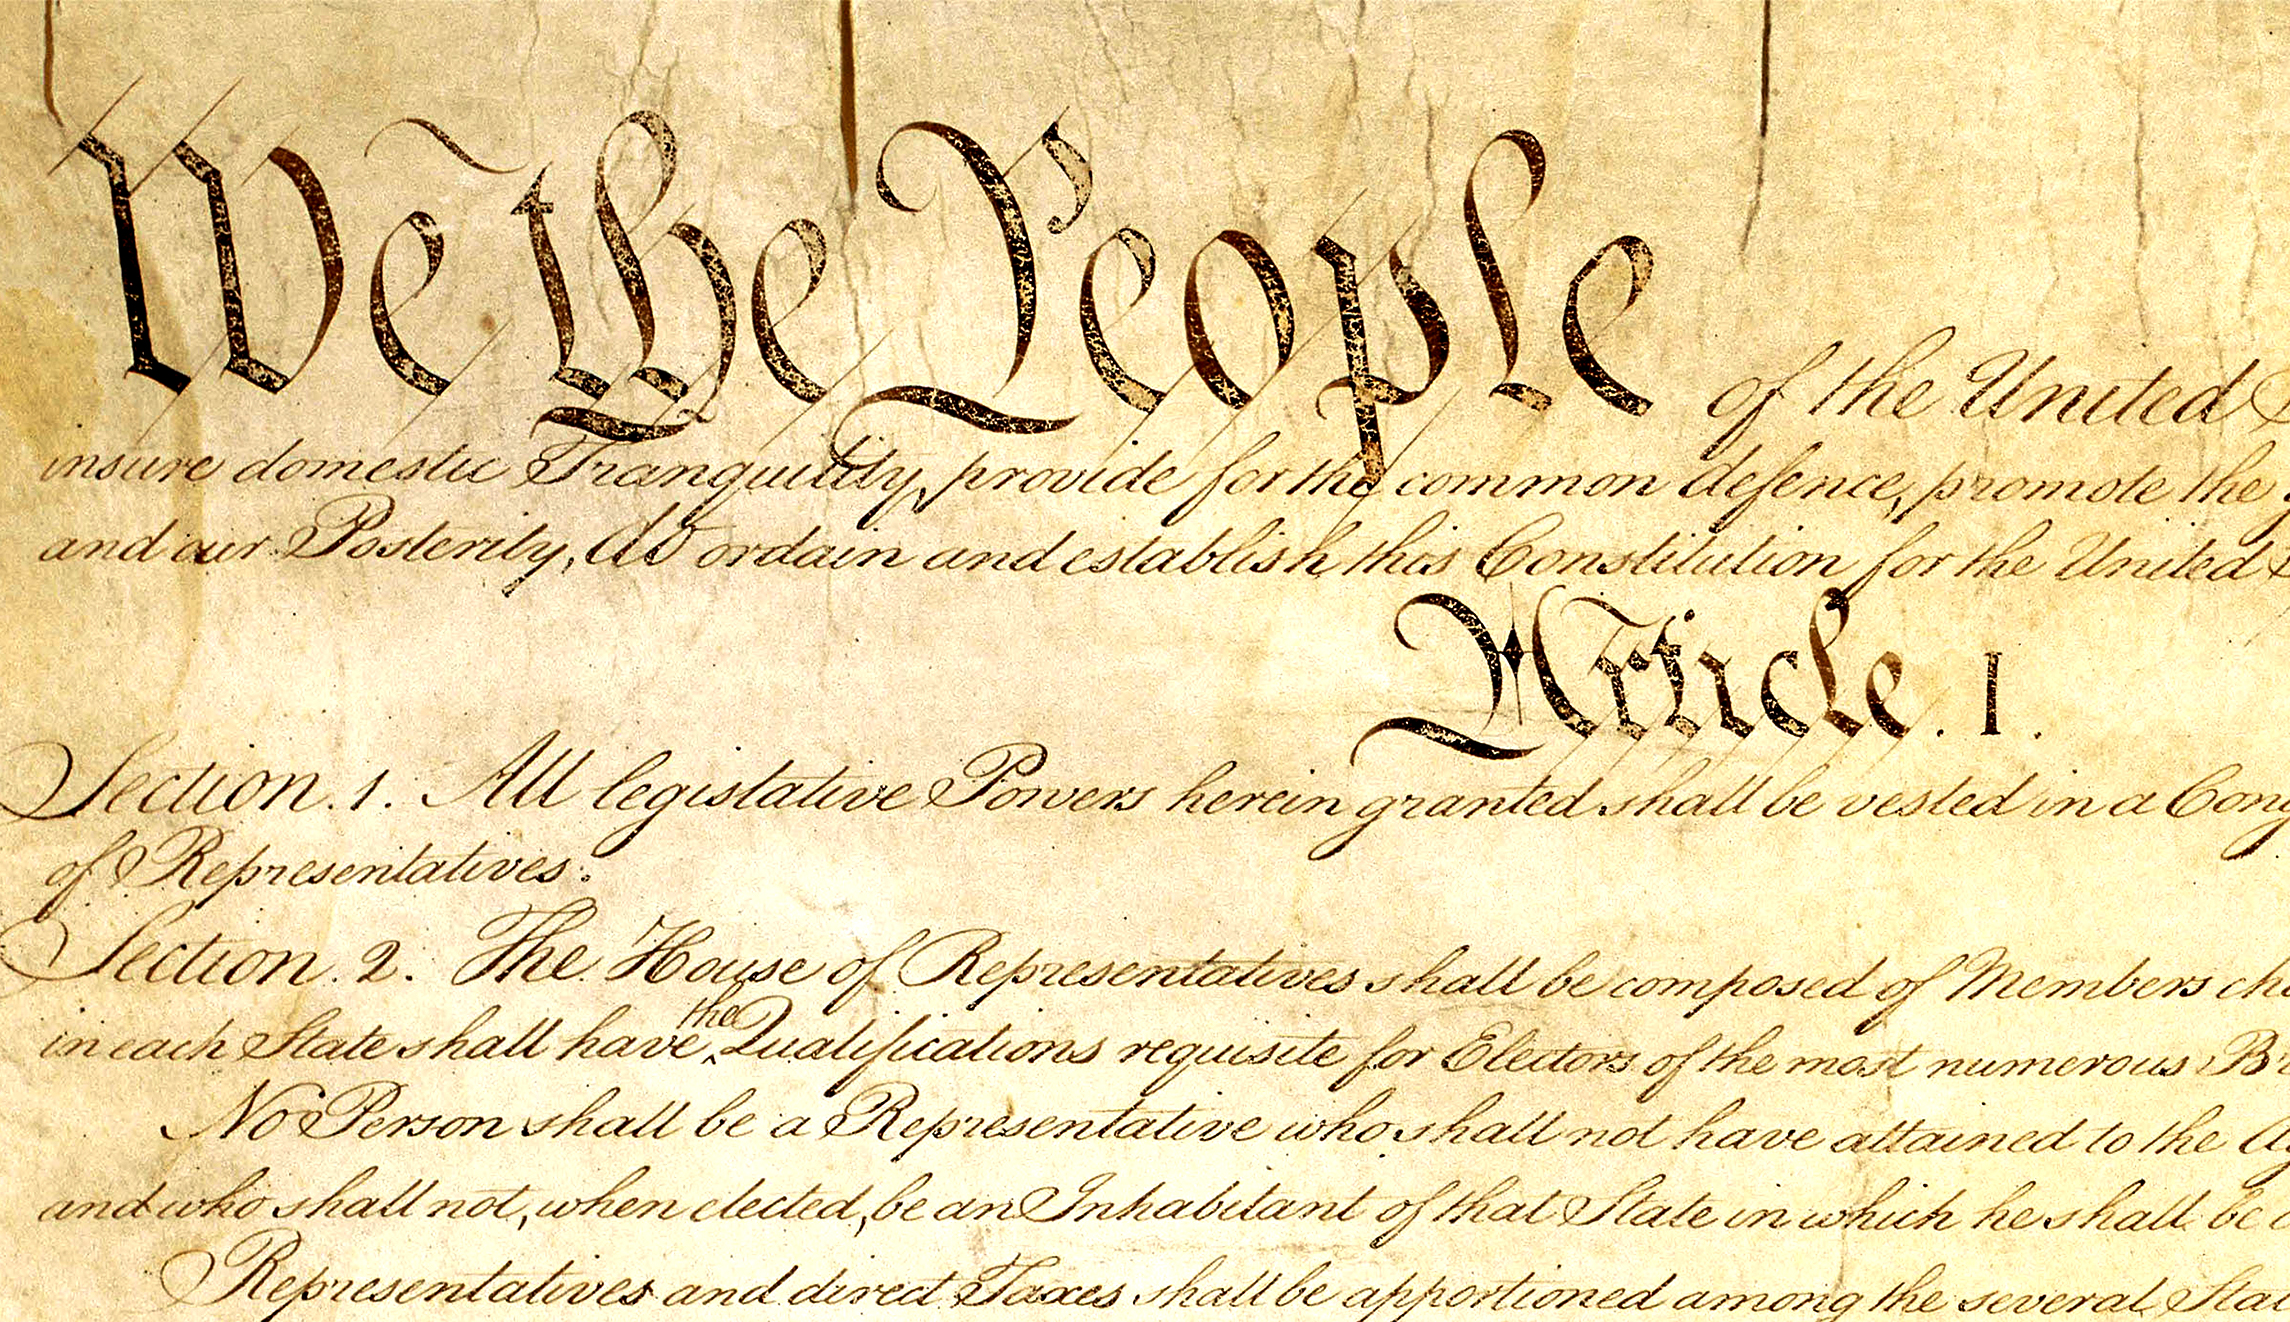 We the People of the United S
insure domestic Tranquility, provide for the common defence, promote the g
and our Posterity, do ordain and establish this Constitution for the United S
Article. I.
Section. 1. All legislative Powers herein granted shall be vested in a Cong
of Representatives.
Section. 2. The House of Representatives shall be composed of Members cho
in each State shall have the Qualifications requisite for Electors of the most numerous Br
No Person shall be a Representative who shall not have attained to the Ag
and who shall not, when elected, be an Inhabitant of that State in which he shall be c
Representatives and direct Taxes shall be apportioned among the several Stat